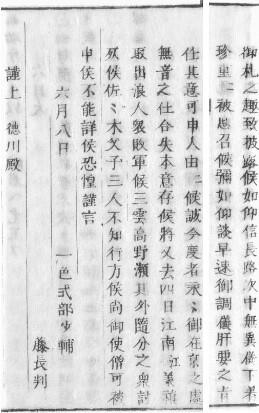 御札之趣致披露候如仰信長路次中無異儀下着
珍重ニ被思召候彌如仰談早速御調儀肝要之旨
仕其意可申入由ニ候誠今度者永〻御在京之處
無音之仕合失本意存候將又去四日江南江義禎
取出浪人衆敗軍候三雲高野瀬其外隨分之衆討
死候佐〻木父子三人不知行方候向御使僧可被
申候不能詳候恐惶謹言
六月八日　一色式部少輔
藤長判
謹上　徳川殿